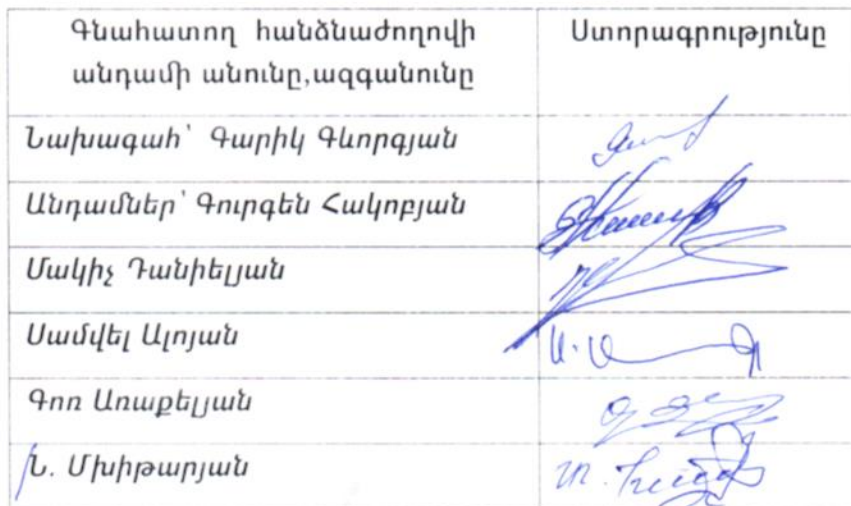 Գնահատող հանձնաժողովի
անդամի անունը,ազգանունը
Ստորագրությունը
Նախագահ՝ Գարիկ Գևորգյան
Անդամներ՝ Գուրգեն Հակոբյան
Մակիչ Դանիելյան
Սամվել Ալոյան
Գոռ Առաքելյան
Ն. Մխիթարյան